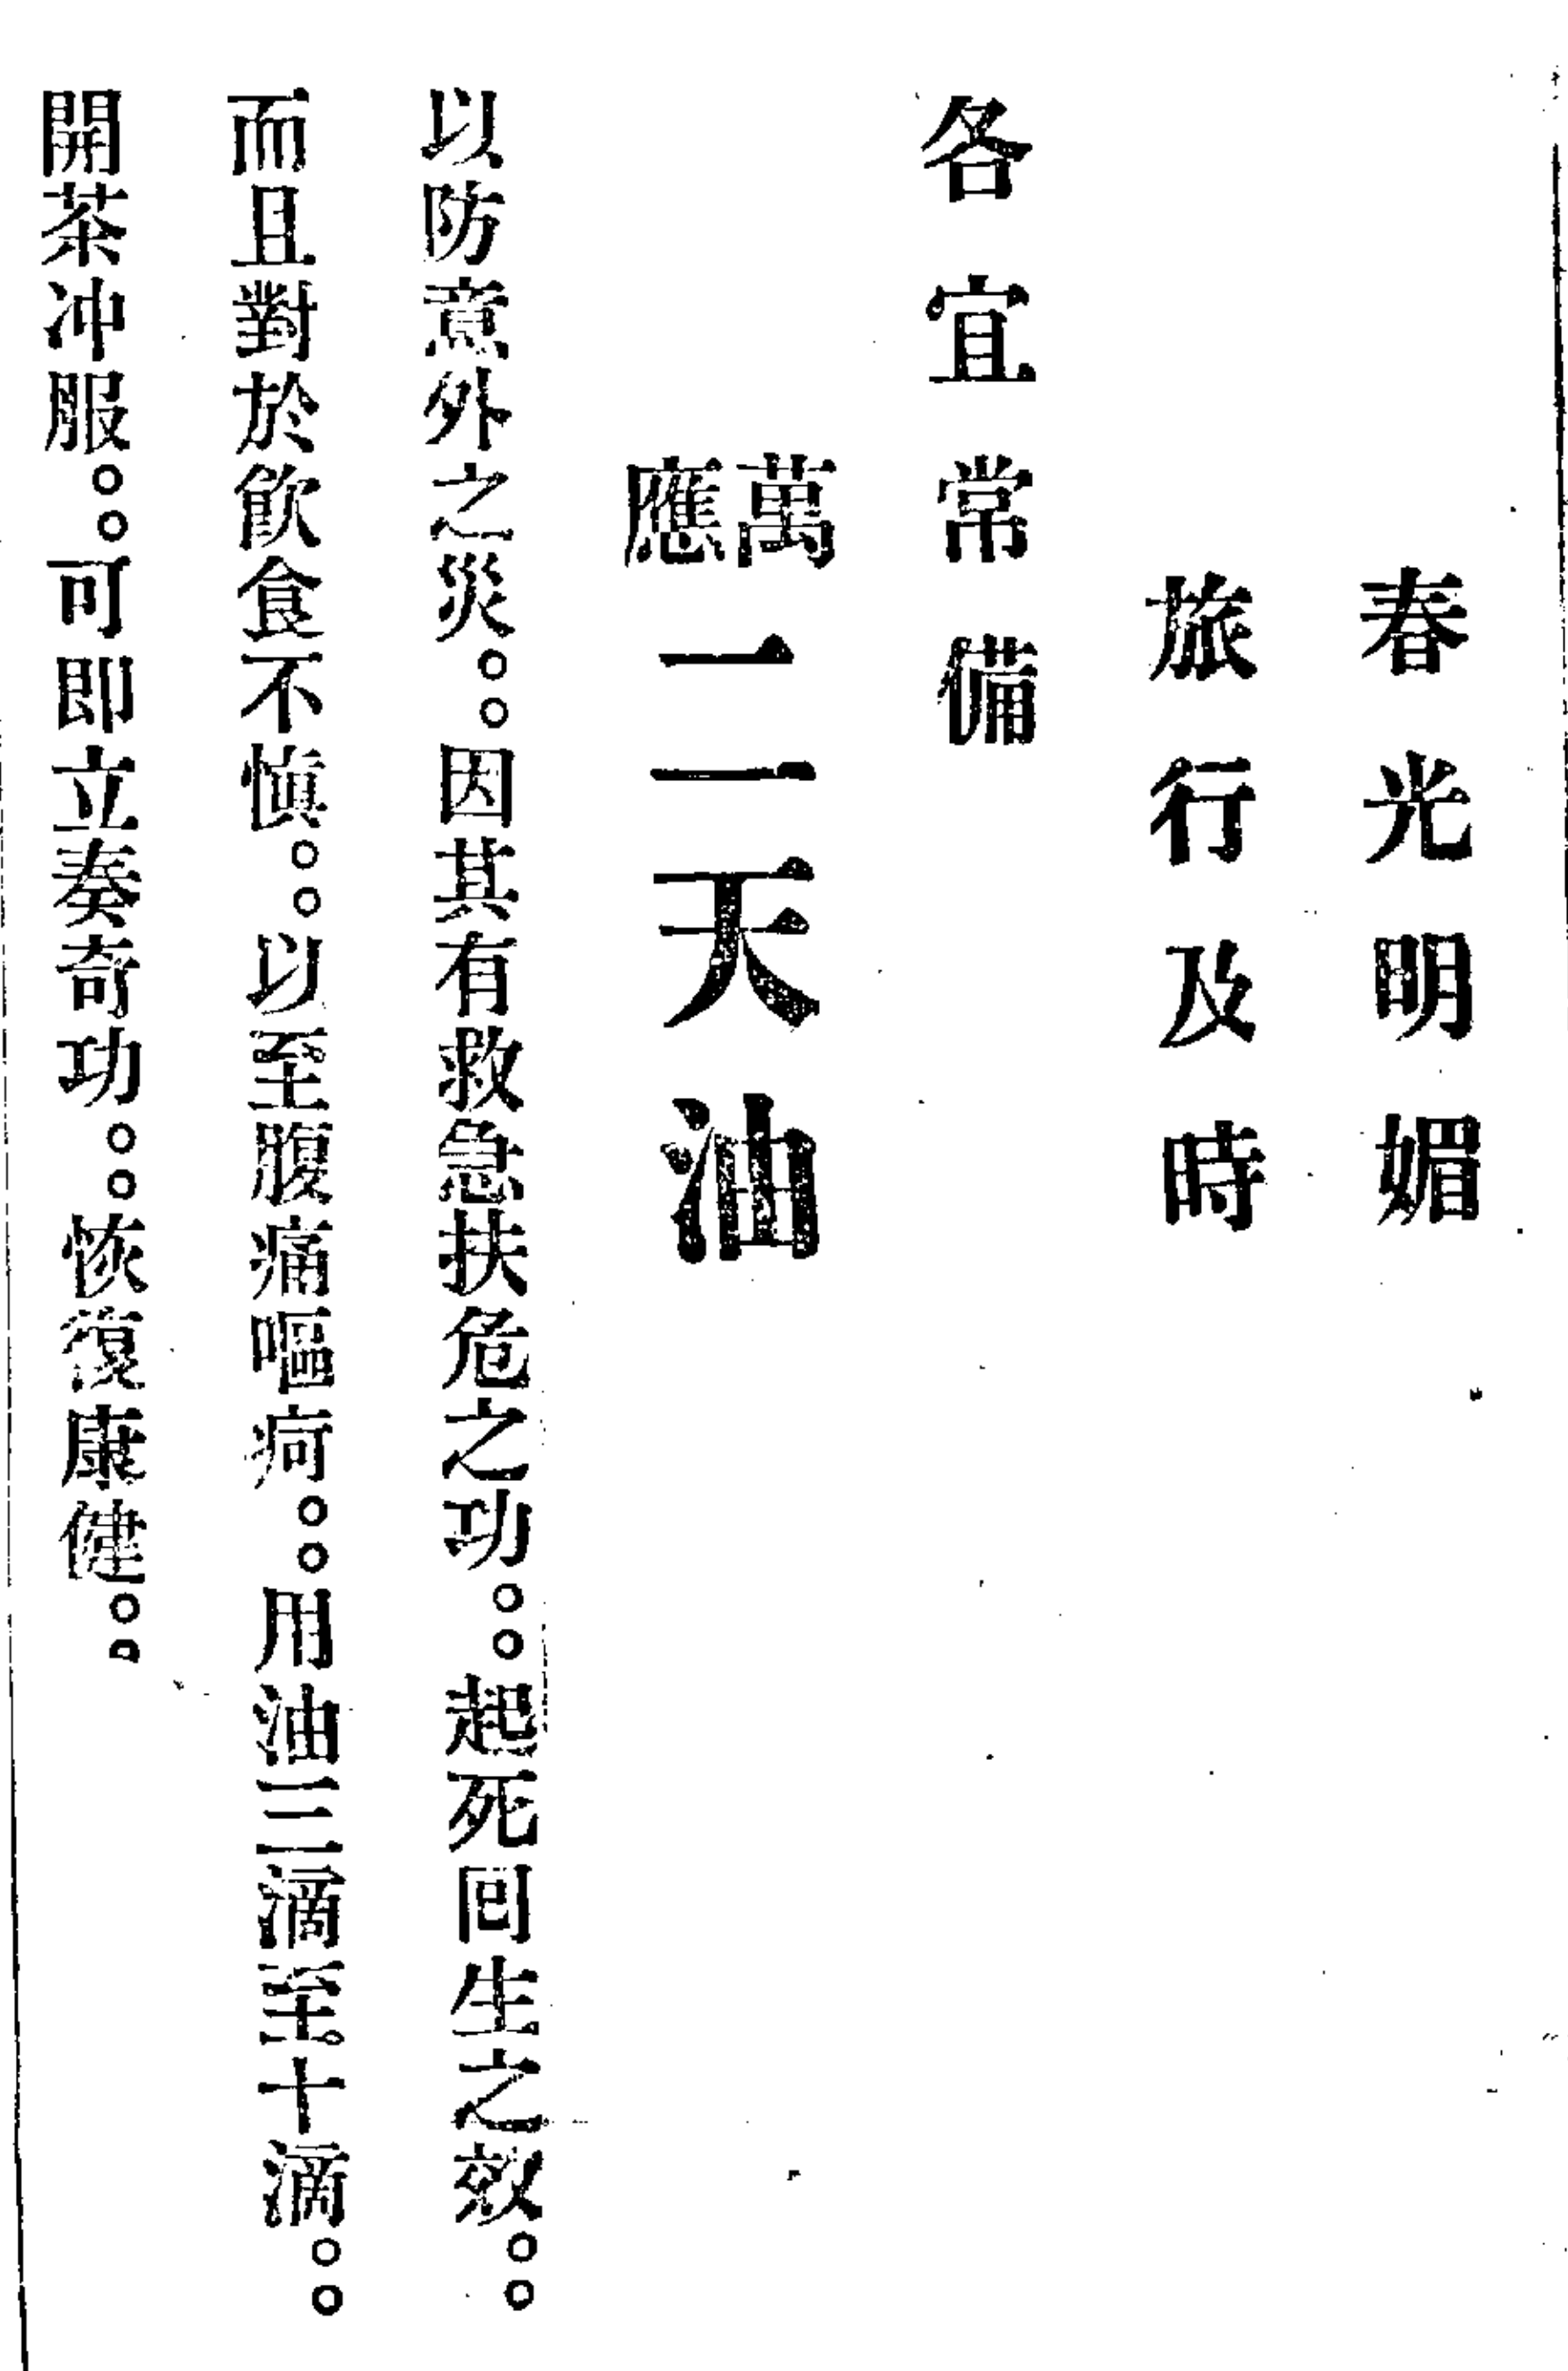 春光明媚
旅行及時
各宜常備
萬應二天油
以防意外之災。。因其有救急扶危之功。。起死囘生之效。。
而且對於飲食不慎。。以至腹痛嘔疴。。用油三滴至十滴。。
開茶冲服。。可即立奏奇功。。恢復康健。。